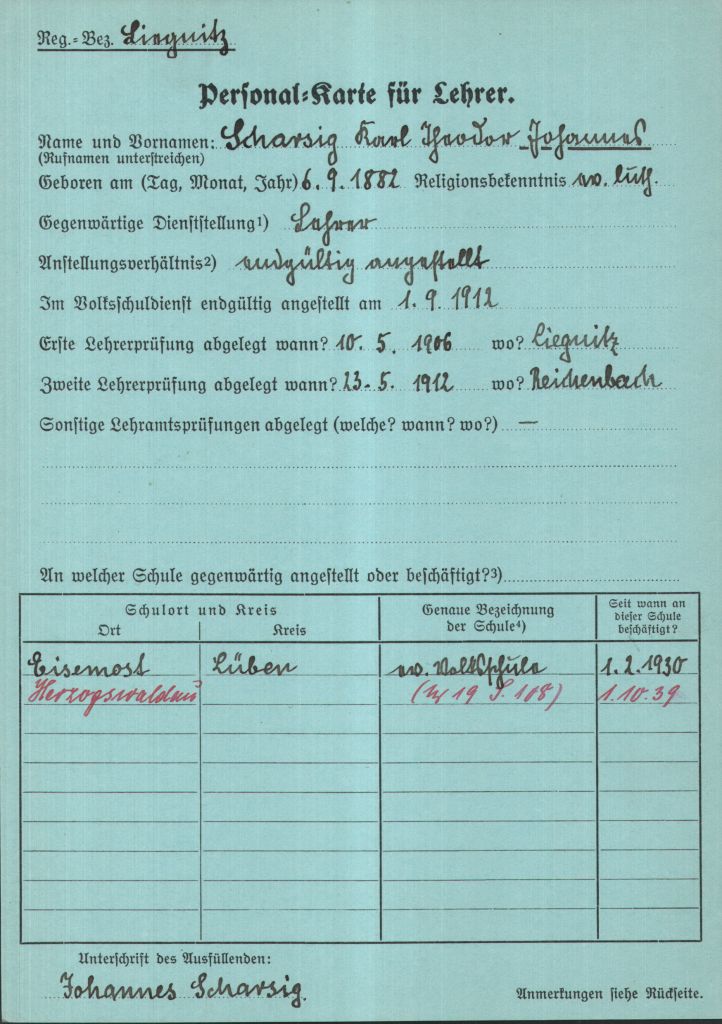 Reg.-Bez. Liegnitz
Personal-Karte für Lehrer.
Name und Vornamen: Scharsig Karl Theodor Johannes
(Rufnamen unterstreichen)
Geboren am (Tag, Monat, Jahr) 6. 9. 1882 Religionsbekenntnis ev. luth.
Gegenwärtige Dienststellung1) Lehrer
Anstellungsverhältnis2) endgültig angestellt
Im Volksschuldienst endgültig angestellt am 1. 9. 1912
Erste Lehrerprüfung abgelegt wann? 10. 5. 1906 wo? Liegnitz
Zweite Lehrerprüfung abgelegt wann? 23. 5. 1912 wo? Reichenbach
Sonstige Lehramtsprüfungen abgelegt (welche? wann? wo?) —
An welcher Schule gegenwärtig angestellt oder beschäftigt?3)
Schulort und Kreis Genaue Bezeichnung Seit wann an
Ort Kreis der Schule4) dieser Schule
beschäftigt?
Eisemost Lüben ev. Volksschule 1. 2. 1930
Herzogswaldau ( 19 S. 108) 1. 10. 39
Unterschrift des Ausfüllenden:
Johannes Scharsig.
Anmerkungen siehe Rückseite.